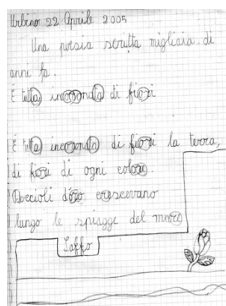 Urbino 22 Aprile 2005
Una poesia scritta migliaia di
anni fa.
È tutta incoronata di fiori
È tutta incoronata di fiori la terra,
di fiori di ogni colore.
Boccioli d'oro crescevano
lungo le spiagge del mare
Saffo